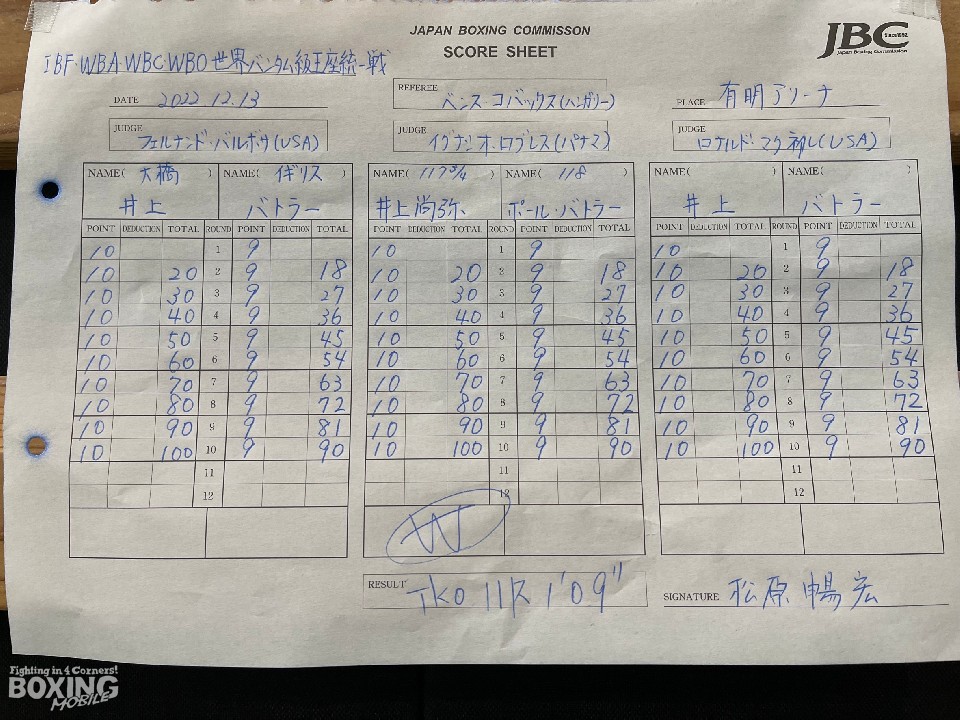 JAPAN BOXING COMMISSON
SCORE SHEET
JBC Since1952
Japan Boxing Commission
IBF・WBA・WBC・WBO世界バンタム級王座統一戦
DATE 2022.12.13
REFEREE ベンス コバックス(ハンガリー)
PLACE 有明アリーナ
JUDGE フェルナンド・バルボサ(USA)
JUDGE イグナシオ・ロブレス(パナマ)
JUDGE ロナルド・マクネア(USA)
NAME( 大橋 ) NAME( イギリス ) NAME( 117 3/4 ) NAME( 118 ) NAME( ) NAME( )
井上 バトラー 井上尚弥 ポール・バトラー 井上 バトラー
POINT DEDUCTION TOTAL ROUND POINT DEDUCTION TOTAL POINT DEDUCTION TOTAL ROUND POINT DEDUCTION TOTAL POINT DEDUCTION TOTAL ROUND POINT DEDUCTION TOTAL
10 1 9 10 1 9 10 1 9
10 20 2 9 18 10 20 2 9 18 10 20 2 9 18
10 30 3 9 27 10 30 3 9 27 10 30 3 9 27
10 40 4 9 36 10 40 4 9 36 10 40 4 9 36
10 50 5 9 45 10 50 5 9 45 10 50 5 9 45
10 60 6 9 54 10 60 6 9 54 10 60 6 9 54
10 70 7 9 63 10 70 7 9 63 10 70 7 9 63
10 80 8 9 72 10 80 8 9 72 10 80 8 9 72
10 90 9 9 81 10 90 9 9 81 10 90 9 9 81
10 100 10 9 90 10 100 10 9 90 10 100 10 9 90
11 11 11
12 12 12
W
RESULT TKO 11R 1'09"
SIGNATURE 松原 暢宏
Fighting in 4 Corners!
BOXING
MOBILE